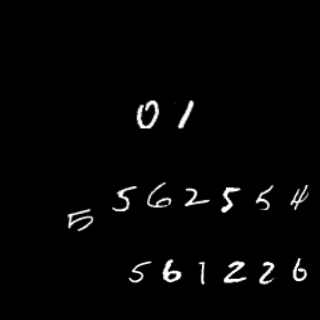 01
5562554
561226